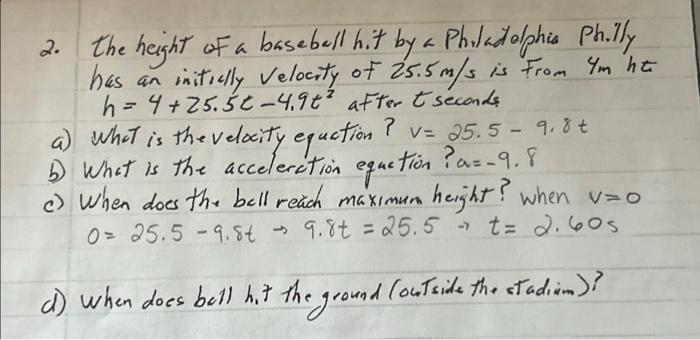 2. The height of a baseball hit by a Philadelphia Philly
has an initially velocity of 25.5 m/s is From 4m ht
h = 4 + 25.5t - 4.9t² after t seconds
a) What is the velocity equation? v = 25.5 - 9.8t
b) What is the acceleration equation? a = -9.8
c) When does the ball reach maximum height? when v=0
0 = 25.5 - 9.8t → 9.8t = 25.5 → t = 2.60s
d) When does ball hit the ground (outside the stadium)?